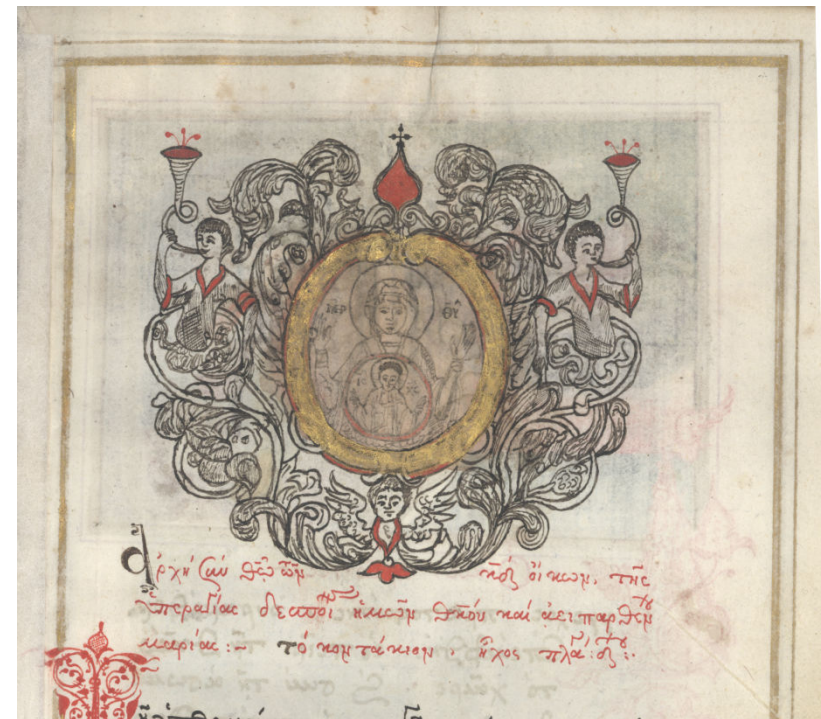 ΜΗΡ ΘΥ
ΙC ΧC
ἀρχὴ σὺν θεῷ τῶν κδ οἴκων. τῆς
ὑπεραγίας δεσποί ἡμῶν θκου καὶ ἀειπαρθέν
μαρίας :- τὸ κοντάκιον. ἦχος πλα δ :-